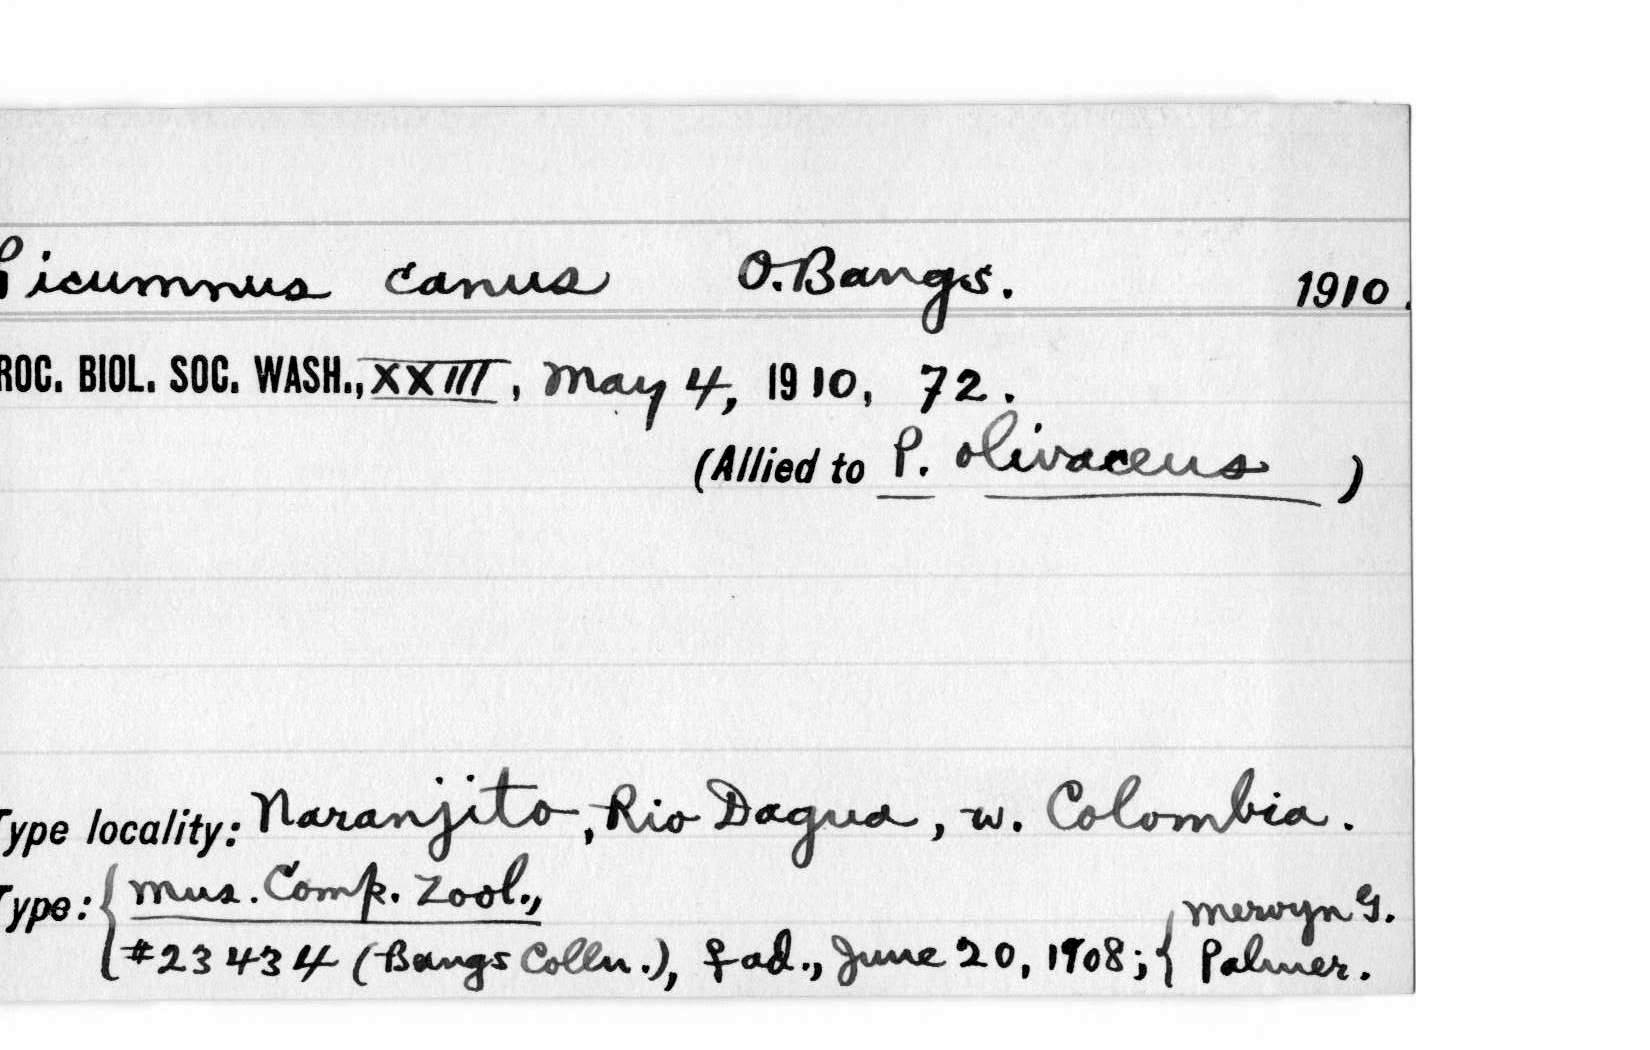 Picumnus canus O. Bangs. 1910.
ROC. BIOL. SOC. WASH., XXIII, May 4, 1910, 72.
(Allied to P. olivaceus )
Type locality: Naranjito, Rio Dagua, w. Colombia.
Type: { Mus. Comp. Zool.,
#23434 (Bangs Colln.), ♀ ad., June 20, 1908; { Mervyn G. Palmer.